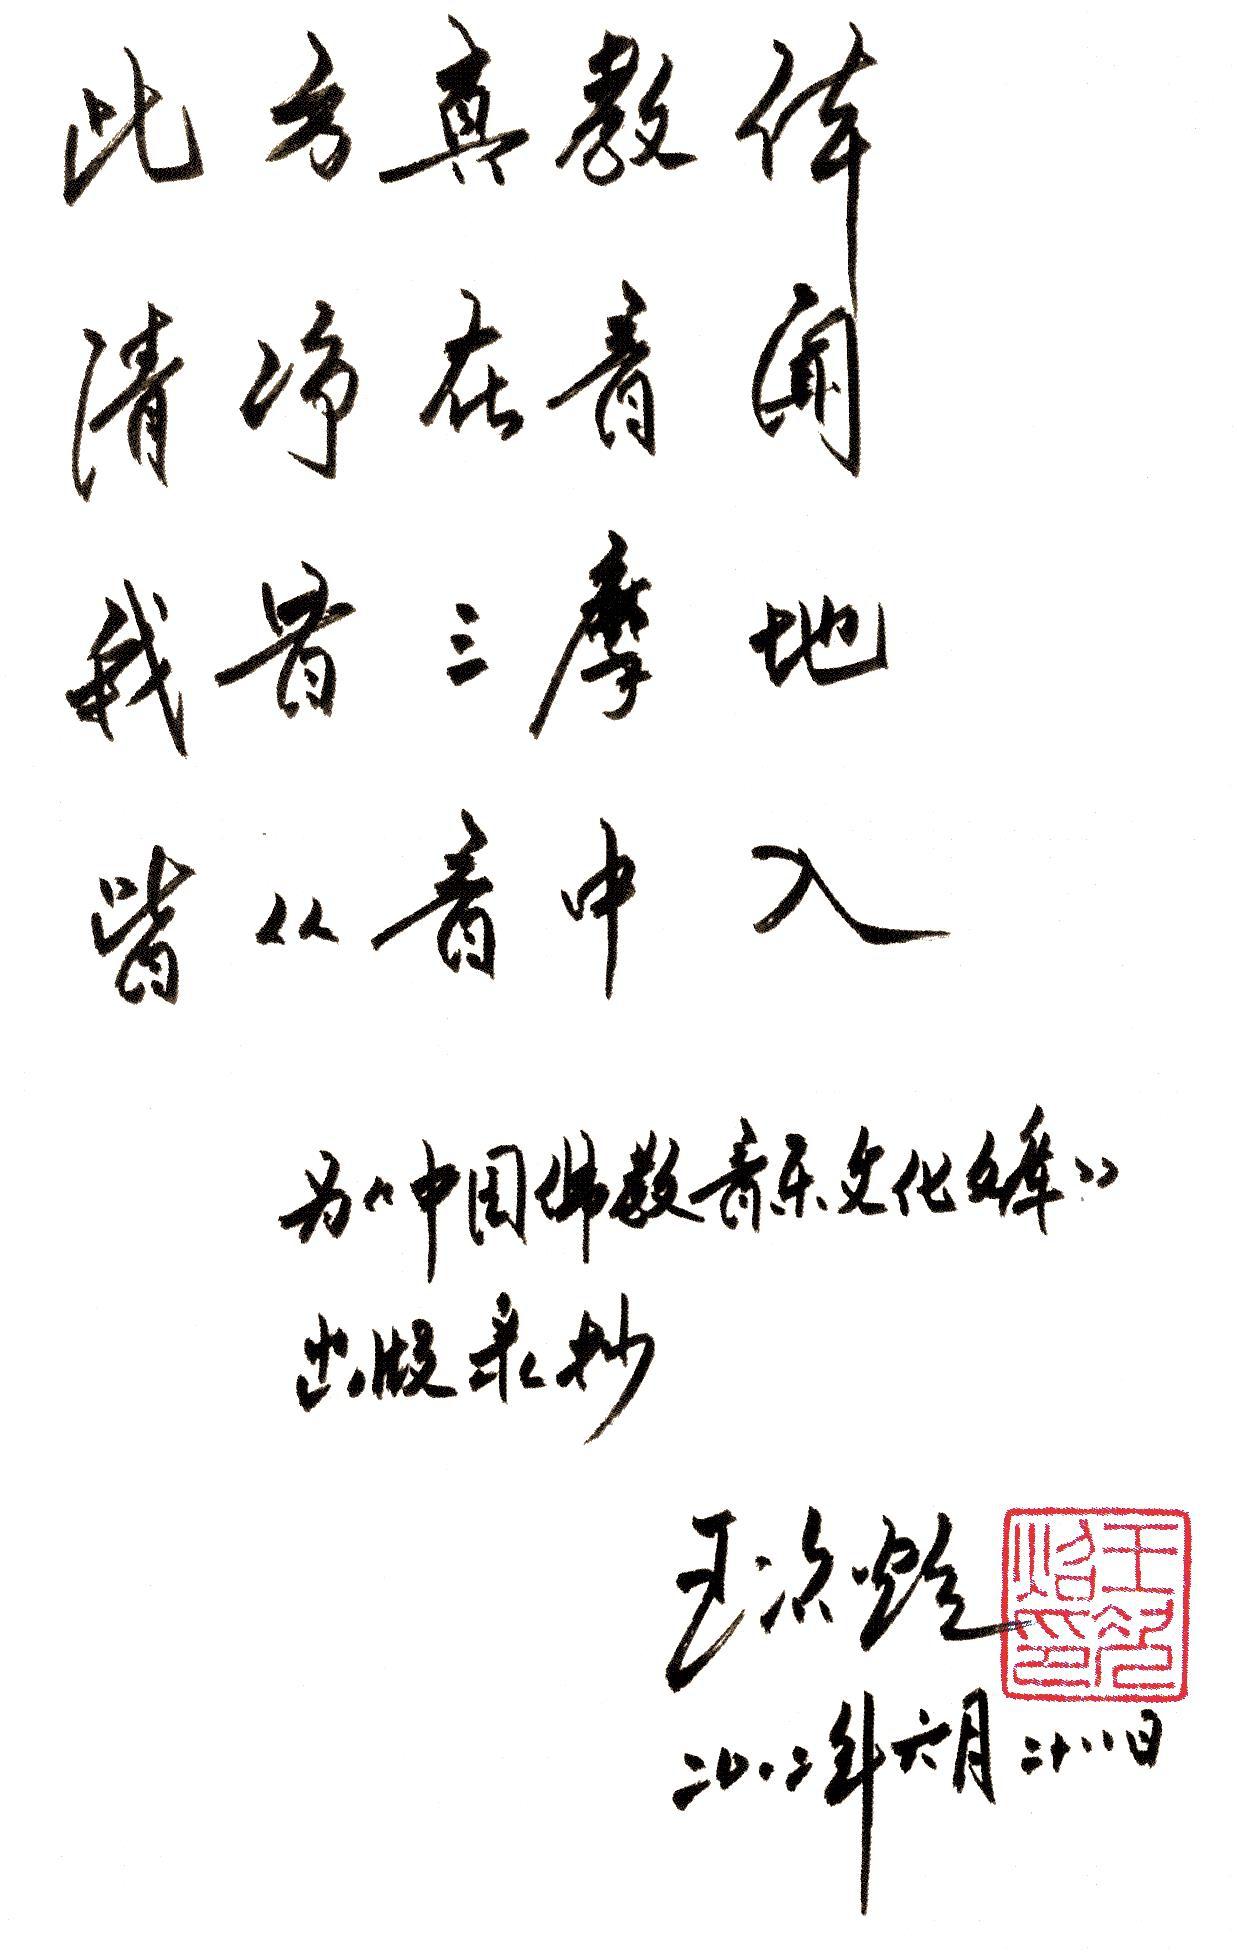 此方真教体
清净在音闻
我昔三摩地
皆从音中入
为《中国佛教音乐文化文库》
出版录抄
王次炤
王次炤印
二〇〇二年六月二十八日